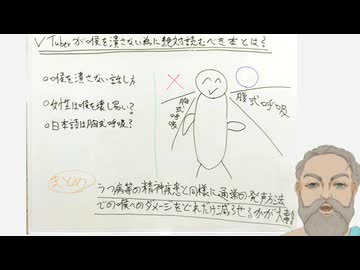 VTuberが喉を潰さない為に絶対読むべき本とは?
○喉を潰さない話し方
○女性は喉を壊し易い?
○日本語は胸式呼吸?
×
○
胸式呼吸
腹式呼吸
まとめ
うつ病等の精神疾患と同様に通常の発声方法
での喉へのダメージをどれだけ減らせるかが大事